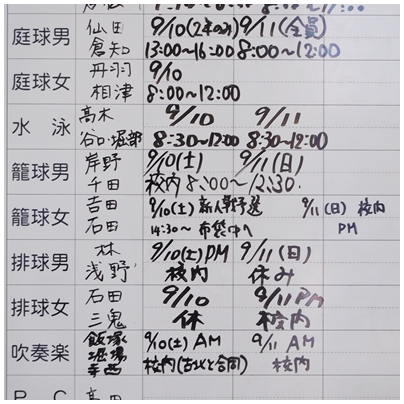 庭球男 仙田 9/10(2年のみ) 9/11(全員)
倉知 13:00〜16:00 8:00〜12:00
庭球女 丹羽 9/10
相津 8:00〜12:00
水泳 高木 9/10 9/11
谷口・堀部 8:30〜12:00 8:30〜12:00
籠球男 岸野 9/10(土) 9/11(日)
千田 校内 8:00〜12:30
籠球女 吉田 9/10(土) 新人戦予選 9/11(日) 校内
石田 14:30〜 布袋中へ PM
排球男 林 9/10(土)PM 9/11(日)
浅野 校内 休み
排球女 石田 9/10 9/11 PM
三鬼 休 校内
吹奏楽 飯塚 9/10(土) AM 9/11 AM
堀場 校内(古北と合同) 校内
幸西
P C 高田